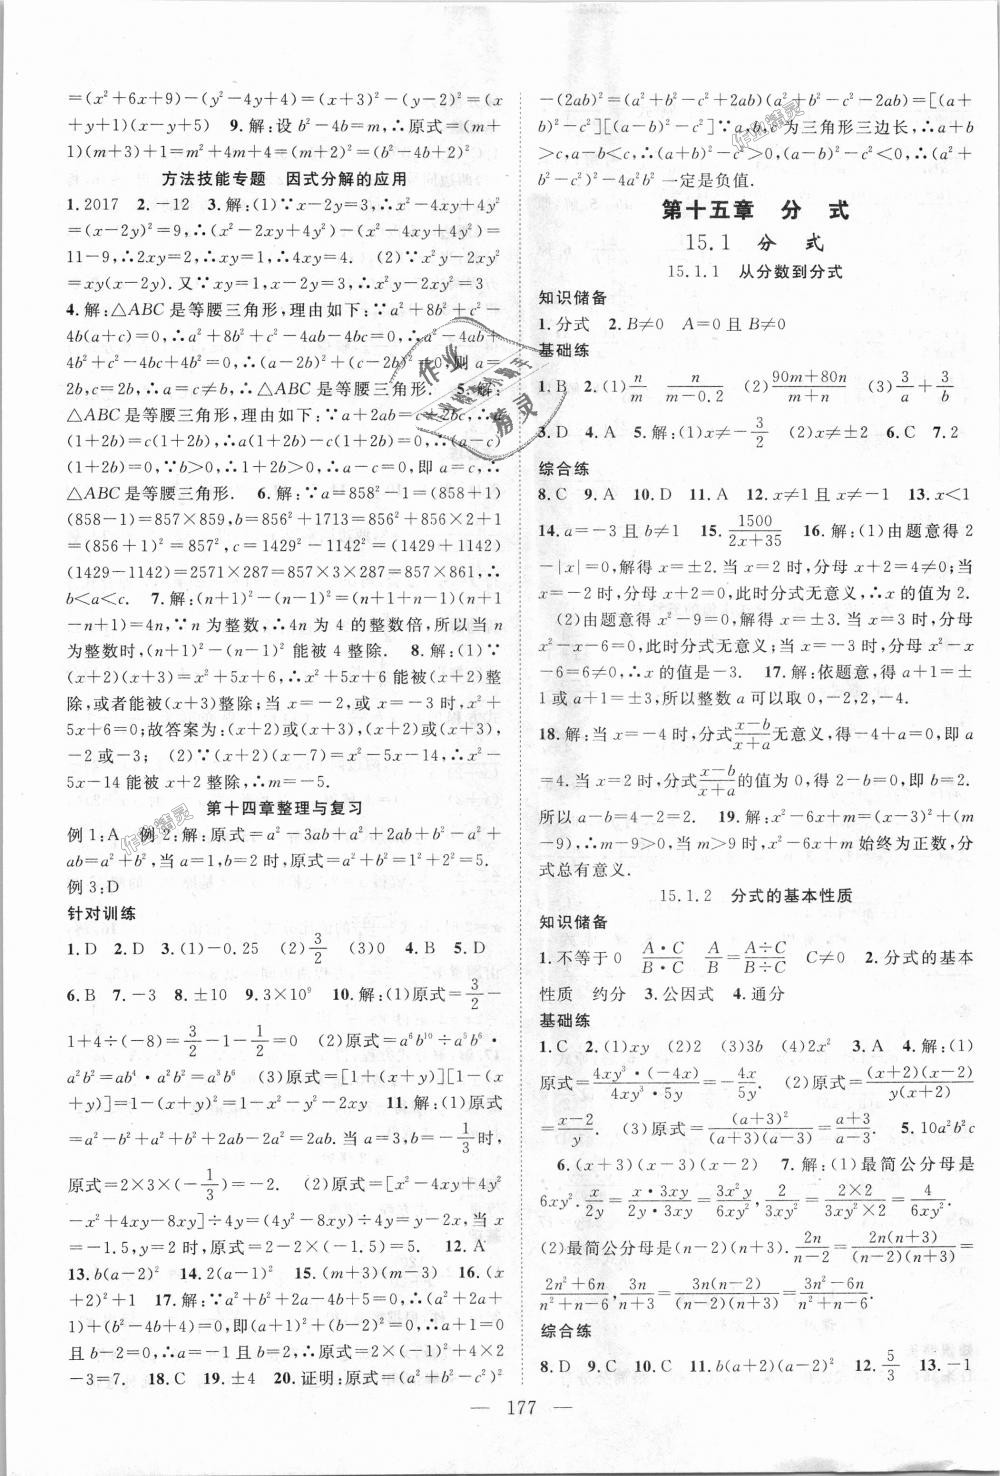 =(x²+6x+9)-(y²-4y+4)=(x+3)²-(y-2)²=(x
+y+1)(x-y+5) 9.解:设 b²-4b=m,∴原式=(m+
1)(m+3)+1=m²+4m+4=(m+2)²=(b²-4b+2)²
方法技能专题 因式分解的应用
1.2017 2.-12 3.解:(1)∵x-2y=3,∴x²-4xy+4y²
=(x-2y)²=9,∴(x²-2xy+4y²)-(x²-4xy+4y²)=
11-9,∴2xy=2,∴4xy=4. (2)∵x²y-2xy²=
xy(x-2y).又∵xy=1,x-2y=3,∴x²y-2xy²=3
4.解:△ABC 是等腰三角形,理由如下:∵a²+8b²+c²-
4b(a+c)=0,∴a²+8b²+c²-4ab-4bc=0,∴a²-4ab+
4b²+c²-4bc+4b²=0,∴(a-2b)²+(c-2b)²=0,则 a=
2b,c=2b,∴a=c≠b,∴△ABC 是等腰三角形. 5.解:
△ABC 是等腰三角形,理由如下:∵a+2ab=c+2bc,∴a
(1+2b)=c(1+2b),∴a(1+2b)-c(1+2b)=0,∴(a-c)
(1+2b)=0,∵b>0,∴1+2b>0,∴a-c=0,即 a=c,∴
△ABC 是等腰三角形. 6.解:∵a=858²-1=(858+1)
(858-1)=857×859,b=856²+1713=856²+856×2+1
=(856+1)²=857²,c=1429²-1142²=(1429+1142)
(1429-1142)=2571×287=857×3×287=857×861,∴
b<a<c. 7.解:(n+1)²-(n-1)²=(n+1+n-1)(n+1
-n+1)=4n,∵n 为整数,∴4n 为 4 的整数倍,所以当 n
为整数时,(n+1)²-(n-1)² 能被 4 整除. 8.解:(1)∵
(x+2)(x+3)=x²+5x+6,∴x²+5x+6 能被(x+2)整
除,或者能被(x+3)整除;当 x=-2,或 x=-3 时,x²+
5x+6=0;故答案为:(x+2)或(x+3),(x+2)或(x+3),
-2 或-3; (2)∵(x+2)(x-7)=x²-5x-14,∴x²-
5x-14 能被 x+2 整除,∴m=-5.
第十四章整理与复习
例 1:A 例 2:解:原式=a²-3ab+a²+2ab+b²-a²+
ab=a²+b²,当 a=1,b=2 时,原式=a²+b²=1²+2²=5.
例 3:D
针对训练
1.D 2.D 3.(1)-0.25 (2)3/2 (3)0 4.B 5.D
6.B 7.-3 8.±10 9.3×10⁹ 10.解:(1)原式=3/2-
1+4÷(-8)=3/2-1-1/2=0 (2)原式=a⁶b¹⁰÷a⁵b⁶·
a²b²=ab⁴·a²b²=a³b⁶ (3)原式=[1+(x+y)][1-(x
+y)]=1-(x+y)²=1-x²-y²-2xy 11.解:(1)原式
=a²-b²+a²+b²+2ab-2a²=2ab,当 a=3,b=-1/3时,
原式=2×3×(-1/3)=-2. (2)原式=[x²-4xy+4y²
-x²+4xy-8xy]÷4y=(4y²-8xy)÷4y=y-2x,当 x
=-1.5,y=2 时,原式=2-2×(-1.5)=5. 12.A
13.b(a-2)² 14.2(a-1)² 15.(m+3)(m-3) 16.(x
+2)²+1 17.解:∵a²+b²+2a-4b+5=0,∴(a²+2a+
1)+(b²-4b+4)=0,即(a+1)²+(b-2)²=0,∴a+1=0
且 b-2=0,∴a=-1,b=2,∴2a²+4b-3=2×(-1)²+4×2
-3=7. 18.C 19.±4 20.证明:原式=(a²+b²-c²)²
-(2ab)²=(a²+b²-c²+2ab)(a²+b²-c²-2ab)=[(a+
b)²-c²][(a-b)²-c²]∵a,b,c 为三角形三边长,∴a+b
>c,a<b+c,∴(a+b)²-c²>0,(a-b)²-c²<0,∴(a²+
b²-c²)²-4a²b² 一定是负值.
第十五章 分 式
15.1 分 式
15.1.1 从分数到分式
知识储备
1.分式 2.B≠0 A=0 且 B≠0
基础练
1.B 2.(1)n/m n/(m-0.2) (2)(90m+80n)/(m+n) (3)3/a+3/b
3.D 4.A 5.解:(1)x≠-3/2 (2)x≠±2 6.C 7.2
综合练
8.C 9.A 10.D 11.A 12.x≠1 且 x≠-1 13.x<1
14.a=-3 且 b≠1 15.1500/(2x+35) 16.解:(1)由题意得 2
-|x|=0,解得 x=±2.当 x=2 时,分母 x+2=4≠0;当
x=-2 时,分母 x+2=0,此时分式无意义,∴x 的值为 2.
(2)由题意得 x²-9=0,解得 x=±3.当 x=3 时,分母
x²-x-6=0,此时分式无意义;当 x=-3 时,分母 x²-x-
6=6≠0,∴x 的值是-3. 17.解:依题意,得 a+1=±
1 或 a+1=±3,所以整数 a 可以取 0,-2,2,-4.
18.解:当 x=-4 时,分式(x-b)/(x+a)无意义,得-4+a=0,即 a
=4.当 x=2 时,分式(x-b)/(x+a)的值为 0,得 2-b=0,即 b=2,
所以 a-b=4-2=2. 19.解:x²-6x+m=(x-3)²+(m
-9),∴(x-3)²≥0,当 m>9 时,x²-6x+m 始终为正数,分
式总有意义.
15.1.2 分式的基本性质
知识储备
1.不等于 0 (A·C)/(B·C) A/B=(A÷C)/(B÷C) C≠0 2.分式的基本
性质 约分 3.公因式 4.通分
基础练
1.C 2.(1)xy (2)2 (3)3b (4)2x² 3.A 4.解:(1)
原式=(4xy³·(-4x))/(4xy³·5y)=-4x/5y (2)原式=((x+2)(x-2))/(y(x+2))
=(x-2)/y. (3)原式=(a+3)²/((a+3)(a-3))=(a+3)/(a-3). 5.10a²b²c
6.(x+3)(x-3)² 7.解:(1)最简公分母是
6xy². x/2y=(x·3xy)/(2y·3xy)=3x²y/6xy²,2/3xy²=(2×2)/(3xy²×2)=4/6xy².
(2)最简公分母是(n-2)(n+3). 2n/(n-2)=2n(n+3)/((n-2)(n+3))=
(2n²+6n)/(n²+n-6),3n/(n+3)=3n(n-2)/((n-2)(n+3))=(3n²-6n)/(n²+n-6).
综合练
8.D 9.C 10.C 11.b(a+2)(a-2)² 12.5/3 13.-1
177